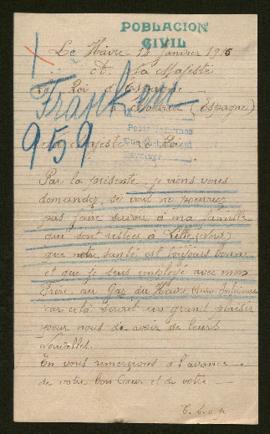 POBLACION
CIVIL
Le Hâvre, 14 Janvier 1916
A Sa Majesté
Le Roi d'Espagne
(Espagne)
959
Sa Majesté le Roi
Par la présente je viens vous
demander, si vous ne pourriez
pas faire savoir à ma famille
qui sont restée à Lille (Nord)
que notre santé est toujours bonne
et que je suis employé avec mon
frère au Gaz du Hâvre
car cela serait un grand plaisir
pour nous de avoir de leurs
nouvelles.
En vous remerciant à l'avance
de votre bon cœur et de votre